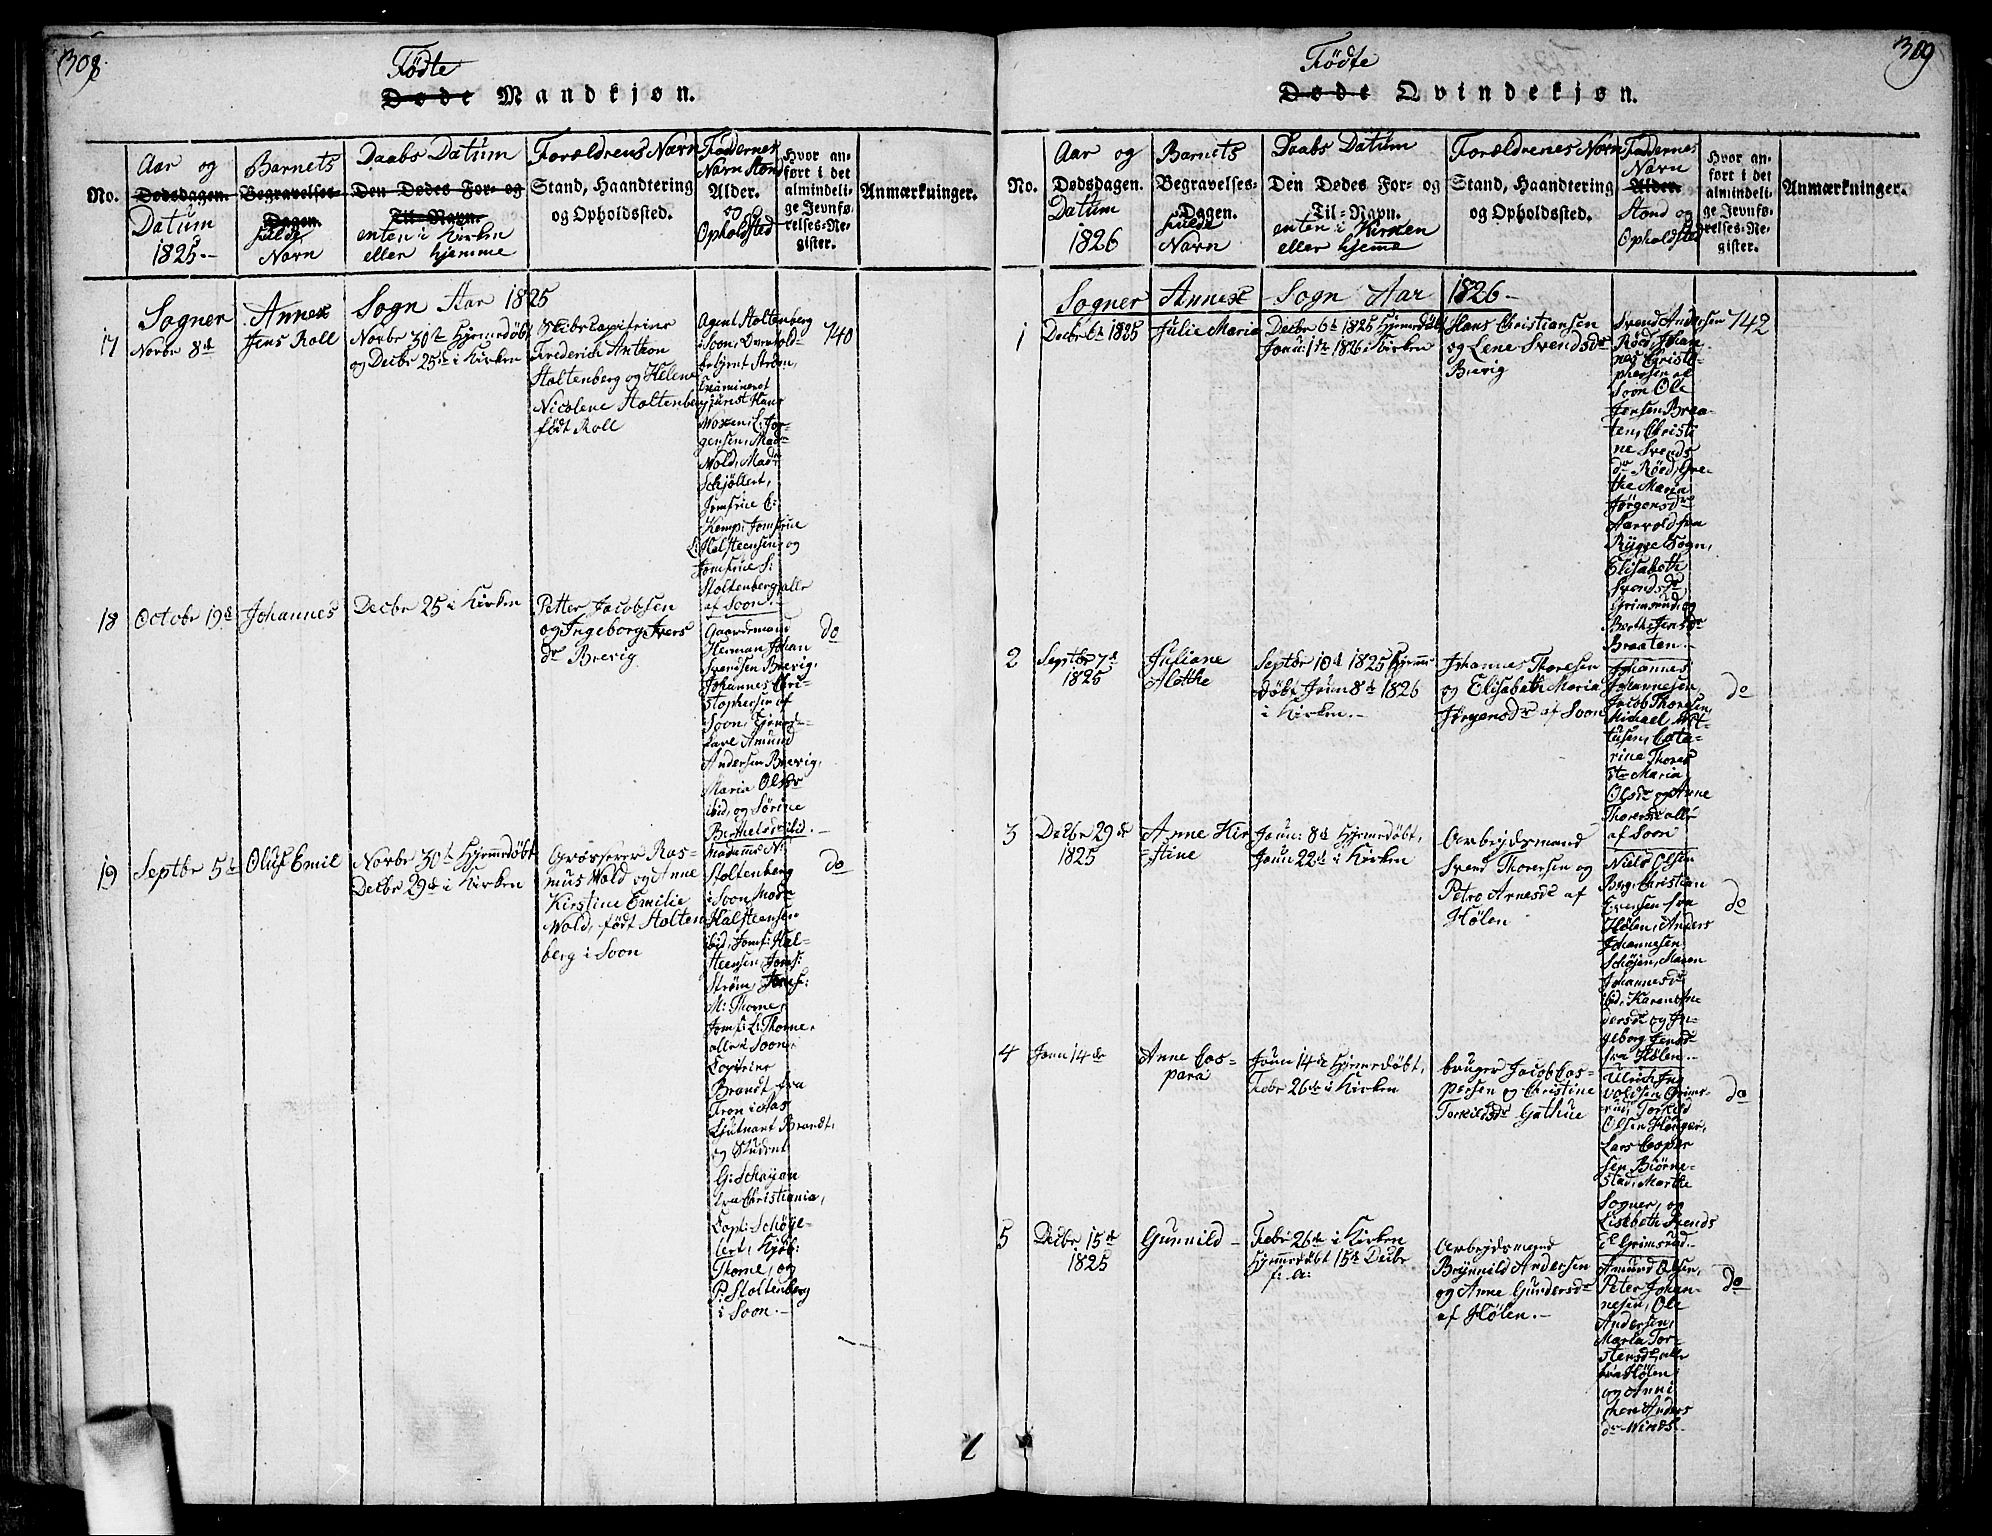 308.
Fødte
Døde Mandkjøn.
No.
Aar og
Dødsdagen.
Datum
1825.-
Barnets
Begravelses-
Dagen.
fulde
Navn
Daabs Datum
Den Dødes For- og
Til-Navn.
enten i Kirken
eller hjemme
Forældrens Navn
Stand, Haandtering
og Opholdssted.
Faddernes
Navn Stand
Alder.
og
Opholdsted
Hvor an-
ført i det
almindeli-
ge Jevnfø-
relses-Re-
gister.
Anmærkninger.
Sogner Annex Sogn Aar 1825
17
Novbr 8de
Jens Roll
Novbr 30te Hjemedøbt
og Decbr 25de i Kirken
Skibscapitaine
Frederich Anthon
Stoltenberg og Helene
Nicolene Stoltenberg
født Roll
Agent Stoltenberg
i Soon, Overtold-
betjent Strøm,
Examineret
jurist Hans
L. Jør-
gensen, Madm
Wold, Madm
Schjøllert,
Jomfrue C:
Kemp, Jomfrue
L: Halsteensen og
Jomfrue S:
Stoltenberg, alle
af Soon.-
740
18
Octobr 19de
Johannes
Decbr 25 i Kirken
Petter Jacobsen
og Ingeborg Ivers
dr Brevig
Gaardemand
Herman Johan
Svendsen Brevig,
Johannes Chri-
stophersen af
Soon, Tjeneste-
karl Amund
Andersen Brevig,
Maria Olsdr
ibid, og Sørine
Berthelsdr ibid.-
do
19
Septbr 5te
Oluf Emil
Novbr 30te Hjemmedøbt
Decbr 29de i Kirken
Grosserer Ras-
mus Wold og Anne
Kirstine Emilie
Wold, født Stolten
berg i Soon
Madame N:
Stoltenberg
i Soon, Madm
Halsteensen
ibid, Jomf: Hal-
steensen, Jomf:
Strøm, Jomf:
M: Thorne,
Jomf: L: Thorne,
alle i Soon,
Capitaine
Brandt fra
Lieutnant Brandt,
og Student
G: Schøyan
fra Christiania,
Capt: Schøge-
lert, Kjøb:
Thorne, og
P: Stoltenberg
i Soon.-
do
309
Fødte
Døde Qvindekjøn.
No.
Aar og
Dødsdagen.
Datum
1826
Barnets
Begravelses-
Dagen.
fulde
Navn
Daabs Datum
Den Dødes For- og
Til-Navn.
enten i Kirken
eller hjemme
Forældrenes Navn
Stand, Haandtering
og Opholdssted.
Faddernes
Navn
Alder.
Stand og
Opholdsted
Hvor an-
ført i det
almindeli-
ge Jevnfø-
relses-Re-
gister.
Anmærkninger.
Sogner Annex Sogn Aar 1826-
1
Decbr 6te 1825
Julie Maria
Decbr 6te 1825 Hjemedøbt
Janu: 1te 1826 i Kirken
Hans Christiansen
og Lene Svendsdr
Brevig
Svend Andersen
Røed, Johan-
nes Christo-
phersen af
Soon, Ole
Jensen Braa-
ten, Christi-
ne Svends
dr Røed, Gre-
the Maria
Jørgensdr
Aarvold fra
Rygge Sogn,
Elisabeth
Svendsdr
Grimsrud, og
Berthe Jensdr
Braaten.-
742
2
Septbr 7de
1825
Juliane
Alethe
Septbr 10de 1825 Hjemme-
døbt Janu 8de 1826
i Kirken.-
Johannes Thoresen
og Elisabeth Maria
Jørgensdr af Soon
Johannes
Johannesen,
Jacob Thoresen,
Michael Mat-
tusen, Cata-
rine Thores
dr, Maria
Olsdr og Anne
Thoresdr, alle
af Soon
do
3
Decbr 29de
1825
Anne Kir
stine
Janu: 8de Hjemedøbt,
Janu 22de i Kirken
Arbejdsmand
Svend Thoresen og
Petro Arnesdr af
Hølen
Niels Olsen
Berg, Christian
Evensen fra
Hølen, Anders
Johannesen
Schøjen, Maren
Johannesdr
ibid, Karen An-
dersdr og In-
geborg Jensdr
fra Hølen.-
do
4
Janu 14de
Anne Cas-
para
Janu 14de Hjemedøbt,
Febr 26de i Kirken
bruger Jacob Cas-
persen og Christine
Torkildsdr Gathue
Ulrich In-
voldsen Grims-
rud, Torkild
Olsen Houger,
Lars Casper
sen Biørne-
stad, Marthe
Sogner, og
Lisebeth Svends
dr Grimsrud.-
do
5
Decbr 15de
1825
Gunnild-
Febr 26de i Kirken
Hjemmedøbt 15de Decbr
f: A:
Arbejdsmand
Brynnild Andersen
og Anne Gundersdr
af Hølen.-
Amund Olsen,
Peter Johan-
nesen, Ole
Andersen,
Marta Tor-
stensdr, alle
fra Hølen
og Anne
Anders
dr
do